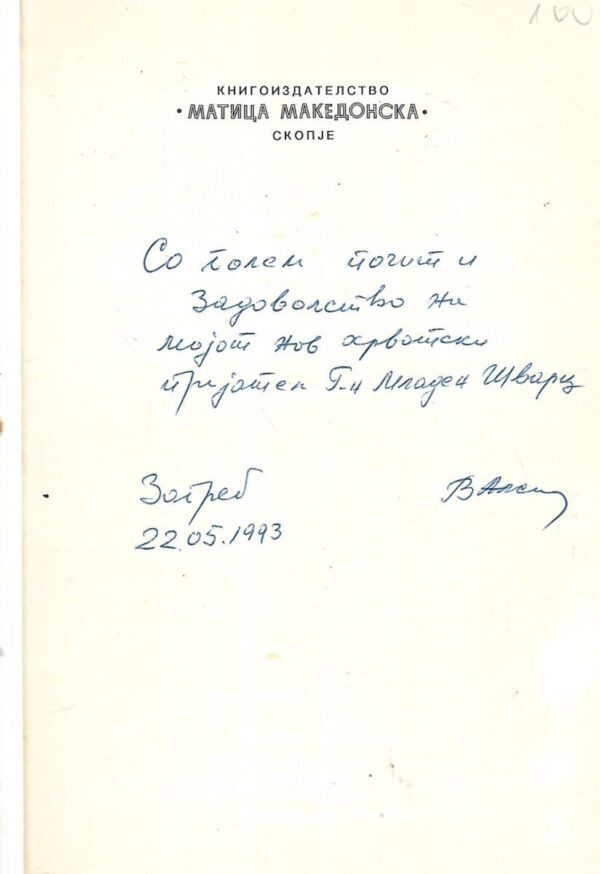 100
КНИГОИЗДАТЕЛСТВО
• МАТИЦА МАКЕДОНСКА •
СКОПЈЕ
Со голем почит и
задоволство на
мојот нов хрватски
пријател Г-н Младен Шварц
Загреб
22.05.1993